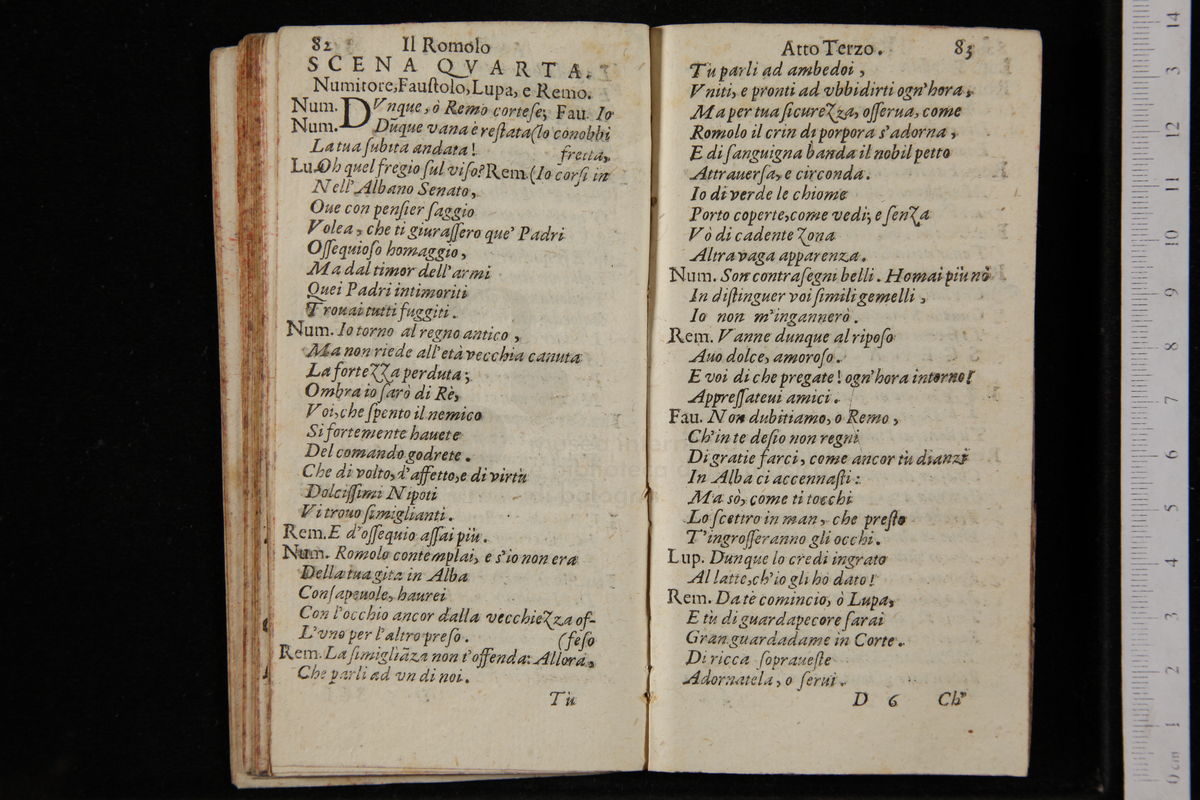 82 Il Romolo
SCENA QVARTA.
Numitore, Fauſtolo, Lupa, e Remo.
Num. DVnque, ò Remo corteſe; Fau. Io
Num. Duque vana è reſtata (lo conobbi
La tua ſubita andata! fretta,
Lu. Oh quel fregio ſul viſo? Rem. (Io corſi in
Nell' Albano Senato,
Oue con penſier ſaggio
Volea, che ti giuraſſero que' Padri
Oſſequioſo homaggio,
Ma dal timor dell'armi
Quei Padri intimoriti
Trouai tutti fuggiti.
Num. Io torno al regno antico,
Ma non riede all'età vecchia canuta
La fortezza perduta;
Ombra io ſarò di Rè,
Voi, che ſpento il nemico
Si fortemente hauete
Del comando godrete.
Che di volto, d'affetto, e di virtù
Dolciſſimi Nipoti
Vi trouo ſimiglianti.
Rem. E d'oſſequio aſſai più.
Num. Romolo contemplai, e s'io non era
Della tua gita in Alba
Conſapeuole, haurei
Con l'occhio ancor dalla vecchiezza of-
L'vno per l'altro preſo. (feſo
Rem. La ſimigliãza non t'offenda: Allora,
Che parli ad vn di noi.
Tù
Atto Terzo. 83
Tù parli ad ambedoi,
Vniti, e pronti ad vbbidirti ogn'hora,
Ma per tua ſicurezza, oſſerua, come
Romolo il crin di porpora s'adorna,
E di ſanguigna banda il nobil petto
Attrauerſa, e circonda.
Io di verde le chiome
Porto coperte, come vedi; e ſenza
Vò di cadente zona
Altra vaga apparenza.
Num. Son contraſegni belli. Homai più nò
In diſtinguer voi ſimili gemelli,
Io non m'ingannerò.
Rem. Vanne dunque al ripoſo
Auo dolce, amoroſo.
E voi di che pregate! ogn'hora intorno!
Appreſſateui amici.
Fau. Non dubitiamo, o Remo,
Ch'in te deſio non regni
Di gratie farci, come ancor tù dianzi
In Alba ci accennaſti:
Ma sò, come ti tocchi
Lo ſcettro in man, che preſto
T'ingroſſeranno gli occhi.
Lup. Dunque lo credi ingrato
Al latte, ch'io gli hò dato!
Rem. Da tè comincio, ò Lupa,
E tù di guardapecore ſarai
Gran guardadame in Corte.
Di ricca ſopraueſte
Adornatela, o ſerui.
D 6 Ch'
14
3
12
11
10
9
8
7
6
5
4
3
2
1
0 cm